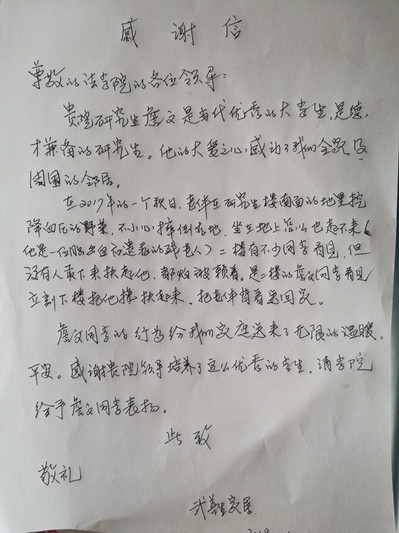 感谢信
尊敬的法学院的各位领导:
贵院研究生詹文是当代优秀的大学生,是德,
才兼备的研究生。他的大爱之心,感动了我们全家及
周围的邻居。
在2017年的一个秋日,老伴在研究生楼南面的地里挖
降血压的野菜,不小心摔倒在地,坐在地上怎么也起不来(
他是一位脑出血后遗症的残老人)二楼有不少同学看见,但
没有人敢下来扶起他,都怕被赖着。是一楼的詹文同学看见
立刻下楼把他搀扶起来,把老伴背着送回家。
詹文同学的行为给我们家庭送来了无限的温暖,
平安。感谢贵院领导培养了这么优秀的学生,请学院
给予詹文同学表扬。
此致
敬礼